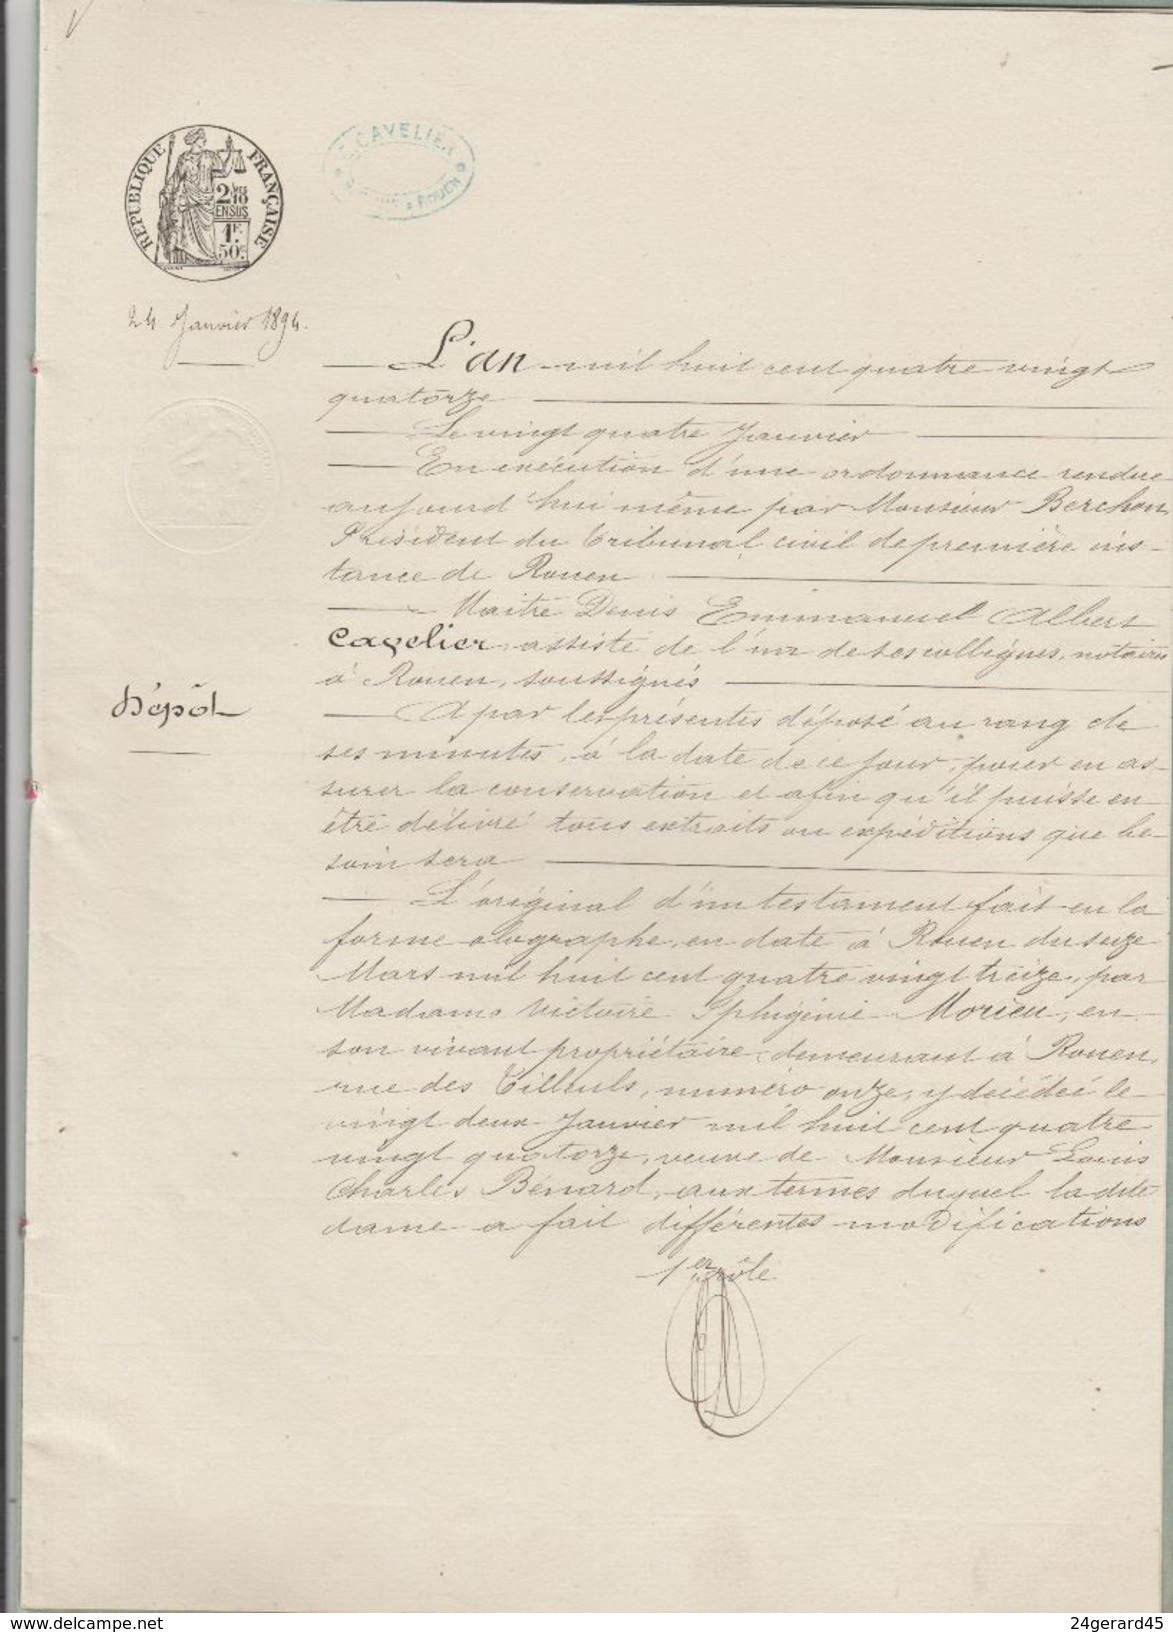 RÉPUBLIQUE FRANÇAISE
2/10
EN SUS
1F.
50c.
CAVELIER
ROUEN
24 Janvier 1894.
L'an mil huit cent quatre vingt
quatorze
Le vingt quatre Janvier
En exécution d'une ordonnance rendue
aujourd'hui même par Monsieur Berchon,
Président du Tribunal civil de première ins-
tance de Rouen
Maitre Denis Emmanuel Albert
Cavelier, assisté de l'un de ses collègues, notaires
à Rouen, soussignés
Dépôt
A par les présentes déposé au rang de
ses minutes, à la date de ce jour, pour en as-
surer la conservation et afin qu'il puisse en
être délivré tous extraits ou expéditions que be-
soin sera
L'original d'un testament fait en la
forme olographe, en date à Rouen du seize
Mars mil huit cent quatre vingt treize, par
Madame Victoire Iphigénie Morieu, en
son vivant propriétaire, demeurant à Rouen,
rue des Tilleuls, numéro onze, y décédée le
vingt deux Janvier mil huit cent quatre
vingt quatorze, veuve de Monsieur Louis
Charles Bénard, aux termes duquel la dite
dame a fait différentes modifications
1er rôle
www.delcampe.net
24gerard45